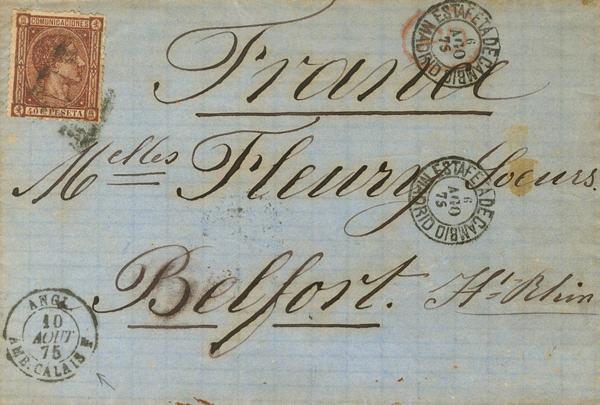 COMUNICACIONES
40 Cs PESETA
ESTAFETA DE CAMBIO MADRID
6
AGO
75
France
Melles Fleury Soeurs.
ESTAFETA DE CAMBIO MADRID
6
AGO
75
Belfort. Ht Rhin
ANGL.
10
AOUT
75
AMB. CALAIS F